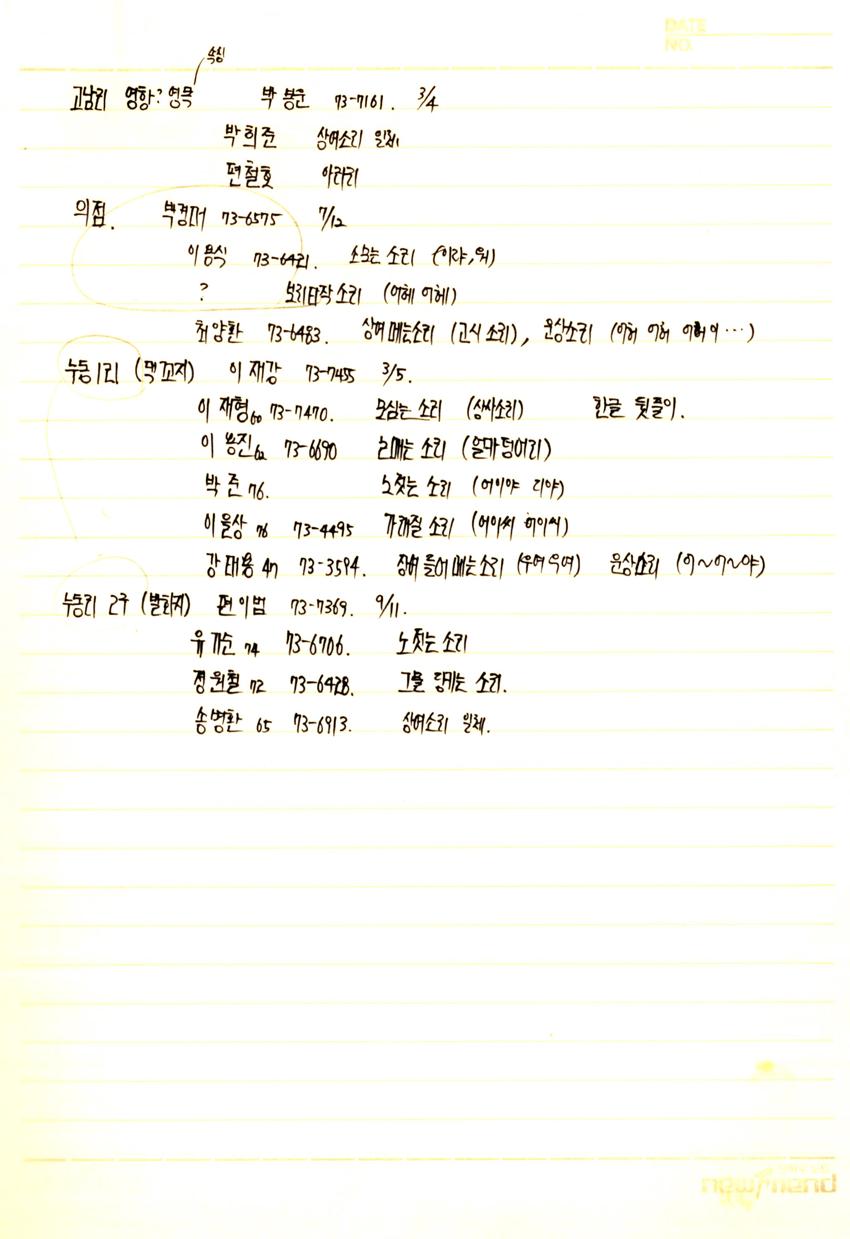 DATE
NO.
속칭
고남리 영항? 영목 박봉운 73-7161. 3/4
박희준 상여소리 일체
편철호 아라리
의점. 박경서 73-6575 7/12
이용식 73-6421. 소모는 소리 (이랴, 워)
? 보리타작소리 (어헤 어헤)
최양환 73-6483. 상여메는소리 (고시 소리), 운상소리 (어허 어허 어허이 ...)
누동1리 (떡꼬지) 이재강 73-7455 3/5.
이재형 60 73-7470. 모심는 소리 (상사소리) 한글 뒷풀이.
이용진 62 73-6690 논매는 소리 (얼마덩어리)
박준 76. 노젓는 소리 (어이야 디야)
이을상 76 73-4495 가래질 소리 (어이씨 어이씨)
강태용 47 73-3594. 상여 들어메는소리 (우여 우여) 운상소리 (어~어~야)
누동리 2구 편이범 73-7369. 9/11.
유가순 74 73-6706. 노젓는소리
정원철 72 73-6428. 그물 당기는 소리.
송병환 65 73-6913. 상여소리 일체.
newfriend